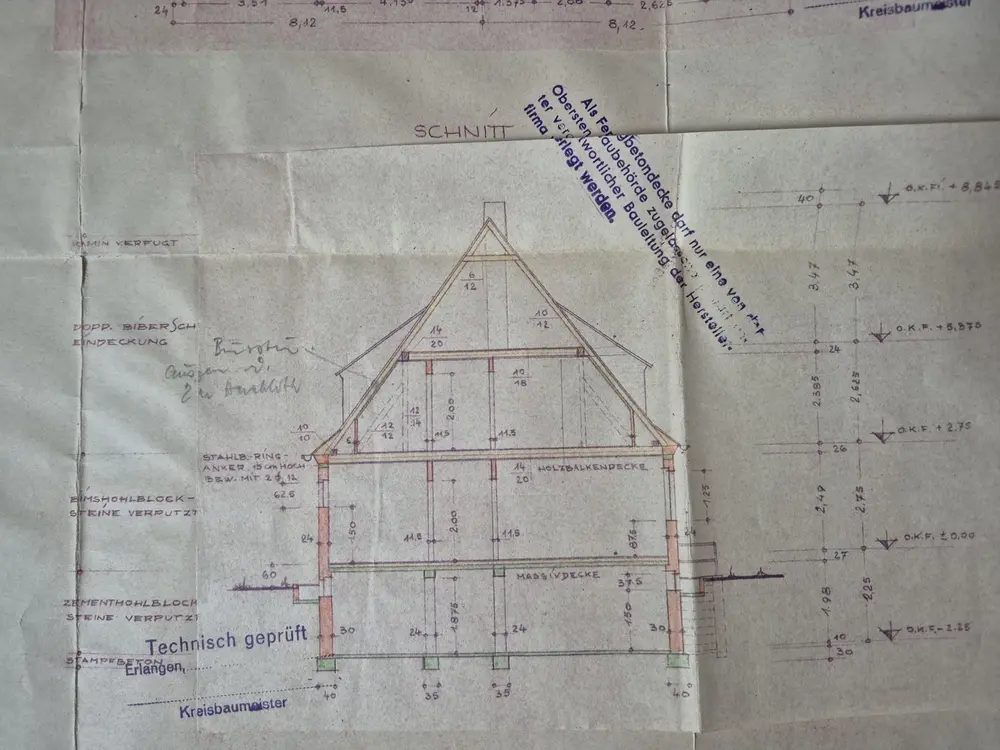 24
3,51
11,5
12
1.375
2,00
2,62
8,12
8,12.
Kreisbaumeister
SCHNITT
Als Fertigbetondecke darf nur eine von der
Obersten Baubehörde zugelassene
ter verantwortlicher Bauleitung der Hersteller-
firma verlegt werden.
KAMIN VERFUGT
DOPP. BIBERSCH
EINDECKUNG
STAHLB.-RING-
ANKER, 15 cm HOCH
BEW. MIT 2 Ø 12
62.5
BIMSHOHLBLOCK-
STEINE VERPUTZT
ZEMENTHOHLBLOCK
STEINE VERPUTZT
STAMPFBETON
Technisch geprüft
Erlangen,
Kreisbaumeister
6
12
14
20
10
12
10
18
12
14
12
12
10
10
6
2.00
11,5
11.5
14
20
HOLZBALKENDECKE
24
1.50
11.5
2.00
11.5
87.5
24
1.25
60
MASSIVDECKE
37.5
30
24
1.875
24
1.50
30
40
35
35
40
40
O.K.FI + 8,845
3,47
3,47
O.K.F. + 5,375
24
2.385
2,625
O.K.F. + 2.75
26
2,49
2.75
O.K.F. ± 0,00
27
1.98
2,25
O.K.F. - 2.25
10
30